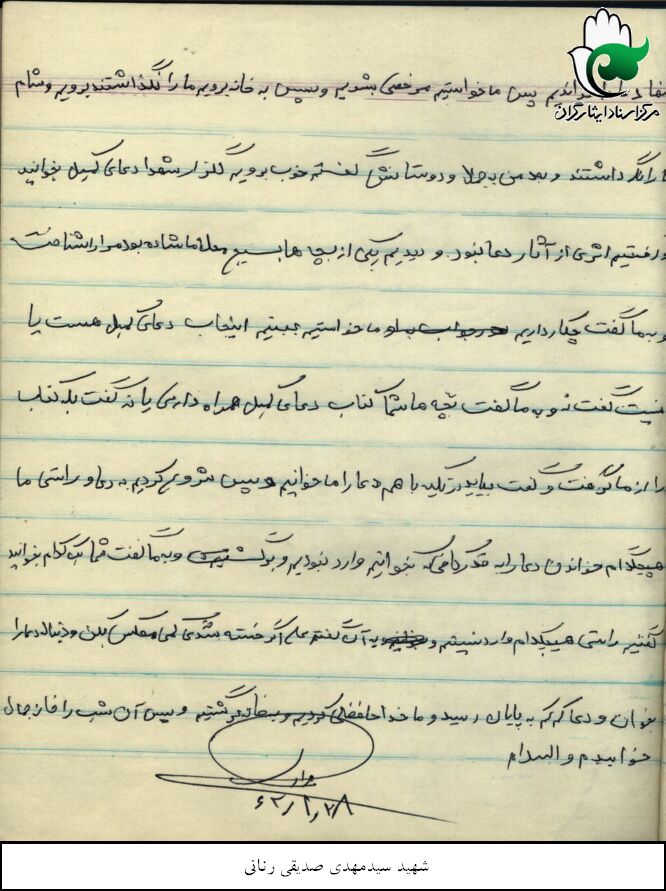 مرکز اسناد ایثارگران
پس ما خواستیم مرخصی بشدیم و سپس به خانه برویم ما را نگذاشتند برویم و شام
را نگه داشتند و بعد من به جلا و دوستانش گفتم خوب برویم گلزار شهدا دعای کمیل بخوانید
رفتیم اثری از آثار دعا نبود. و دیدیم یکی از بچه های بسیج محله ما شاده بود مرا را شناخت
و به ما گفت چکار داریم ما خواستیم ببینیم اینجاب دعای کمیل هست یا
نیست گفت نه و به ما گفت بچه ها شما کتاب دعای کمیل همراه دارین یا نه گفت یک کتاب
را از ما گرفت و گفت بیاید در تکیه با هم دعا را ما خوانیم و سپس شروع کردیم به دعا و راستی ما
هیچکدام خواندن دعا را به قدر کافی که بخوانیم وارد نبودیم و به ما گفت شما یک کدام بخوانید
گفتیم راستی هیچکدام وارد نیستیم و به آن گفتم علی اگر خسته شدی کمی مکس بکن و دنباله دعا را
بخوان و دعا که به پایان رسید و ما خداحافظی کردیم و به خانه برگشتیم و سپس آن شب را فارغ بال
خوابیدم والسلام
۶۲/۱/۲۸
شهید سیدمهدی صدیقی رنانی